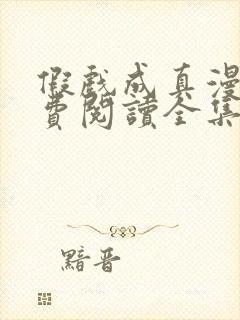 假戲成真漫
費閱讀全集
黯晋